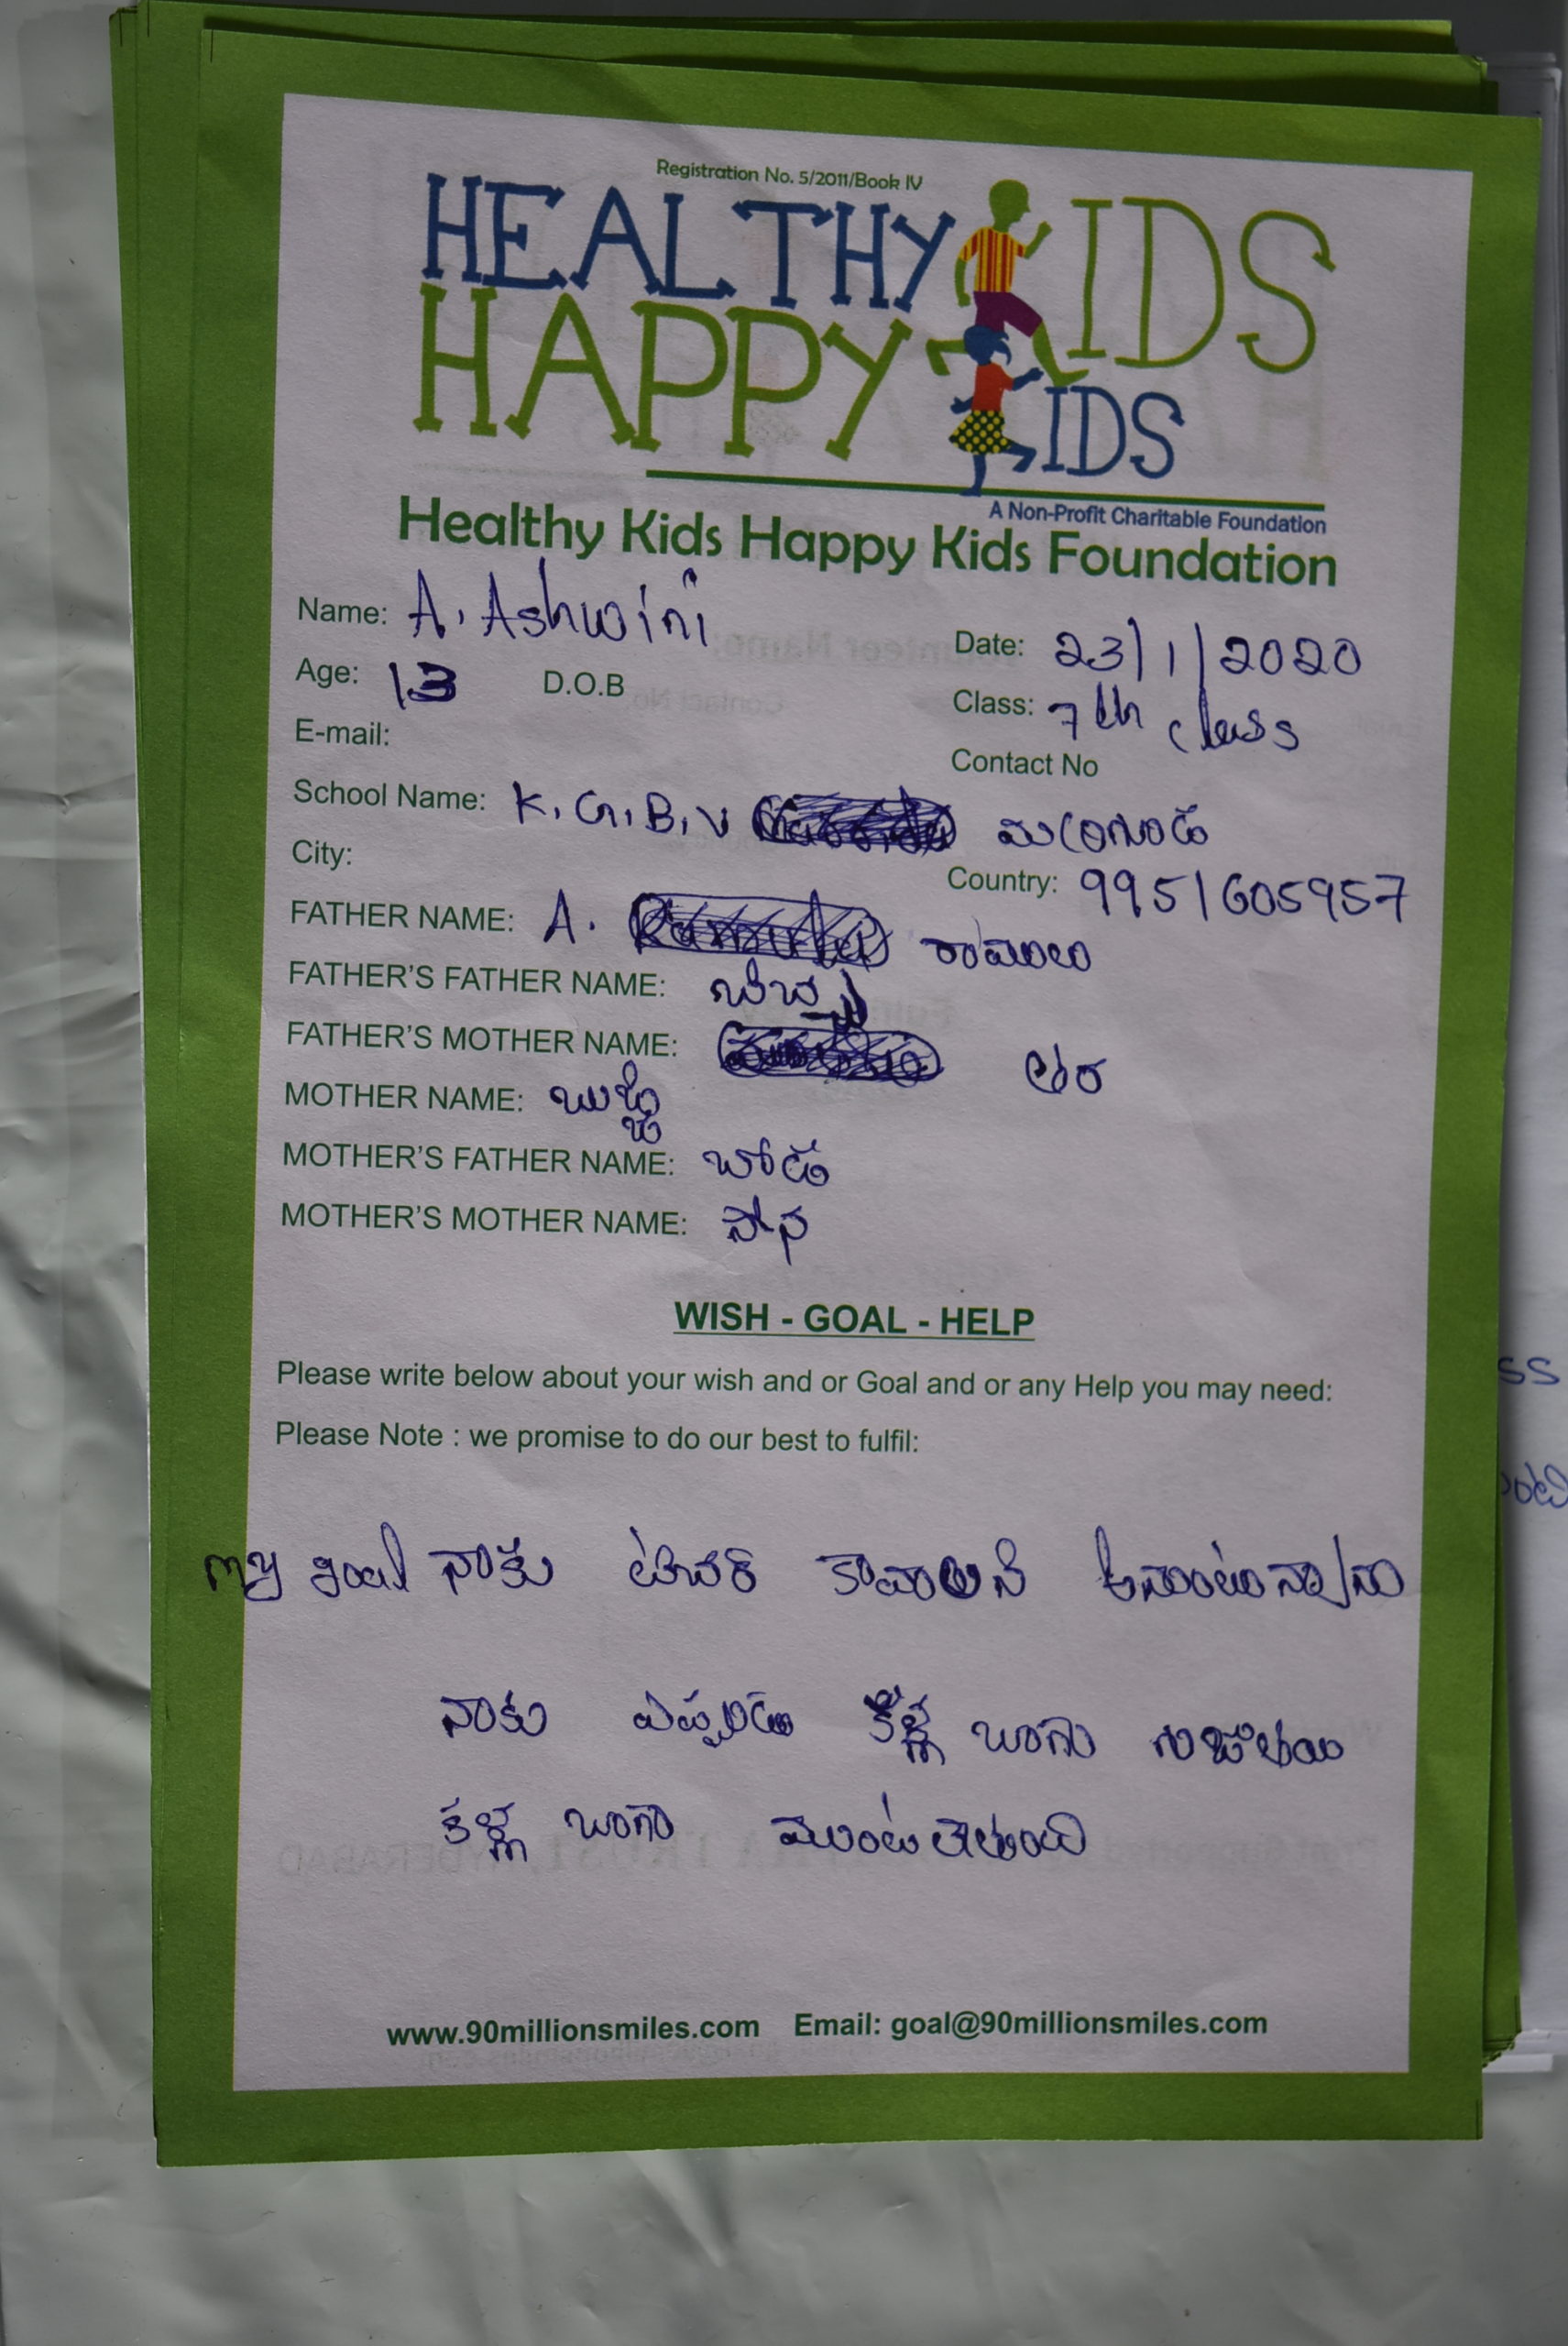 Registration No. 5/2011/Book IV
HEALTHY KIDS
HAPPY KIDS
A Non-Profit Charitable Foundation
Healthy Kids Happy Kids Foundation
Name: A. Ashwini
Date: 23/1/2020
Age: 13 D.O.B
Class: 7th class
E-mail:
Contact No
School Name: K.G.B.V
City:
Country: 9951605957
FATHER NAME: A. రాములు
FATHER'S FATHER NAME:
FATHER'S MOTHER NAME:
MOTHER NAME:
MOTHER'S FATHER NAME: బోడ
MOTHER'S MOTHER NAME:
WISH - GOAL - HELP
Please write below about your wish and or Goal and or any Help you may need:
Please Note : we promise to do our best to fulfil:
my goal నాకు టిచర్ కావాలని అనుంటున్నాను
నాకు ఎప్పుడు కళ్ల బాగా
కళ్ల బాగా
www.90millionsmiles.com Email: goal@90millionsmiles.com